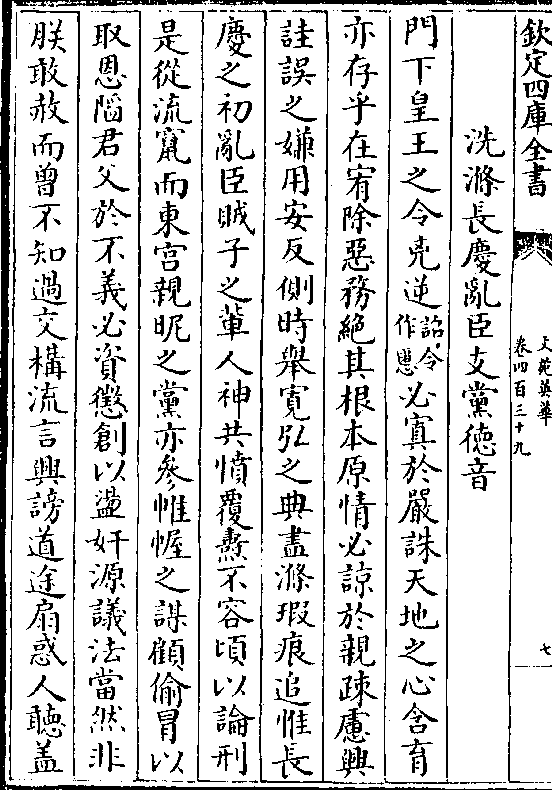 欽定四庫全書
文苑英華
卷四百三十九
七
洗滌長慶亂臣支黨徳音
門下皇王之令兇逆詔令作慝必寘於嚴誅天地之心含育
亦存乎在宥除惡務絶其根本原情必諒於親疎慮興
詿誤之嫌用安反側時舉寛弘之典盡滌瑕痕追惟長
慶之初亂臣賊子之軰人神共憤覆燾不容頃以論刑
是從流竄而東宫親昵之黨亦參帷幄之謀顧偷冒以
取恩陷君父於不義必資懲創以盪奸源議法當然非
朕敢赦而曾不知過交構流言興謗道途扇惑人聽盖